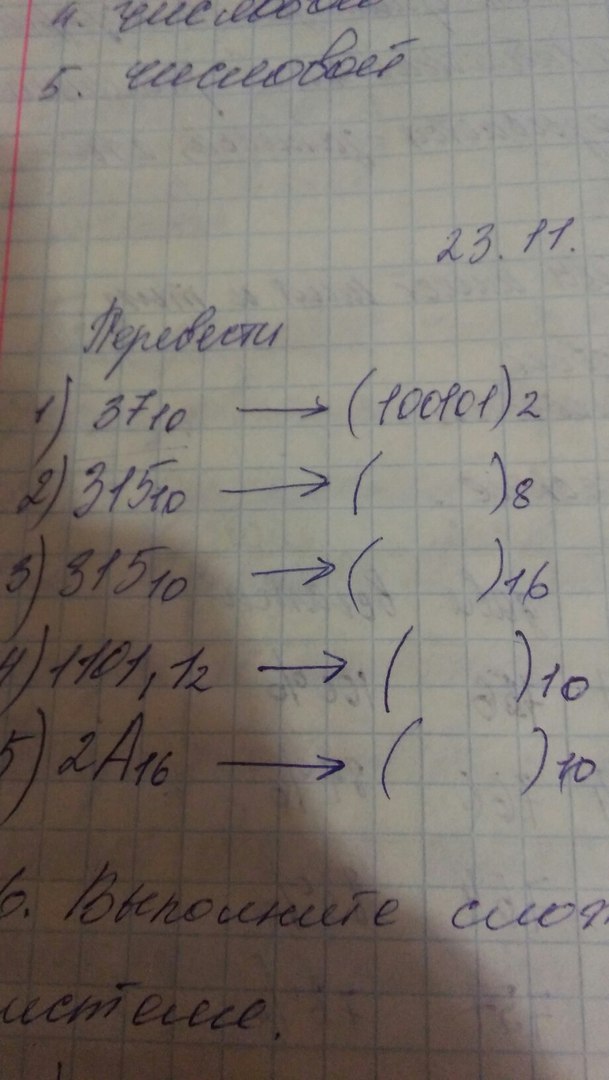 4. числовой
5. числовой
23.11.
Перевести
1) 37₁₀ → (100101)₂
2) 315₁₀ → ( )₈
3) 315₁₀ → ( )₁₆
4) 1101,1₂ → ( )₁₀
5) 2A₁₆ → ( )₁₀
6. Выполните слож
истеме.